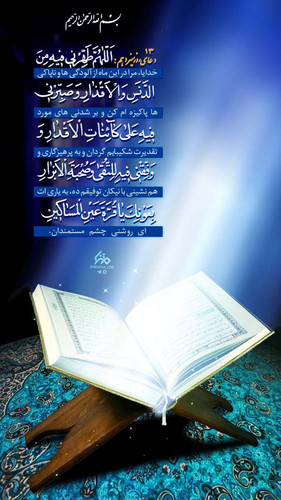 بسم الله الرحمن الرحیم
۱۳
دعای روز سیزدهم: اَللّهُمَّ طَهِّرْنی فیهِ مِنَ
خدایا، مرا در این ماه از آلودگی ها و ناپاکی
الدَّنَسِ وَالْاَقْذارِ وَصَبِّرْنی
ها پاکیزه ام کن و بر شدنی های مورد
فیهِ عَلی کائِناتِ الْاَقْدارِ وَ
تقدیرت شکیبایم گردان و به پرهیزگاری و
وَفِّقْنی فیهِ لِلتُّقی وَصُحْبَةِ الْاَبْرارِ
هم نشینی با نیکان توفیقم ده، به یاری ات
بِعَوْنِکَ یا قُرَّةَ عَیْنِ الْمَساکینِ
ای روشنی چشم مستمندان.